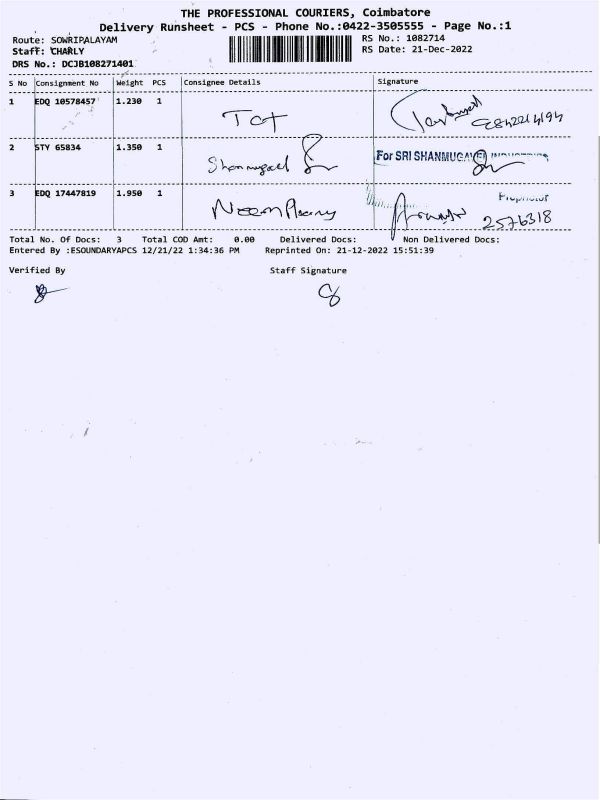 THE PROFESSIONAL COURIERS, Coimbatore
Delivery Runsheet - PCS - Phone No.:0422-3505555 - Page No.:1
Route: SOWRIPALAYAM RS No.: 1082714
Staff: CHARLY RS Date: 21-Dec-2022
DRS No.: DCJB108271401
S No Consignment No Weight PCS Consignee Details Signature
1 EDQ 10578457 1.230 1
2 STY 65834 1.350 1 Shanmugavel For SRI SHANMUGAVEL INDUSTRIES
3 EDQ 17447819 1.950 1 Proprietor
2576318
Total No. Of Docs: 3 Total COD Amt: 0.00 Delivered Docs: Non Delivered Docs:
Entered By :ESOUNDARYAPCS 12/21/22 1:34:36 PM Reprinted On: 21-12-2022 15:51:39
Verified By Staff Signature